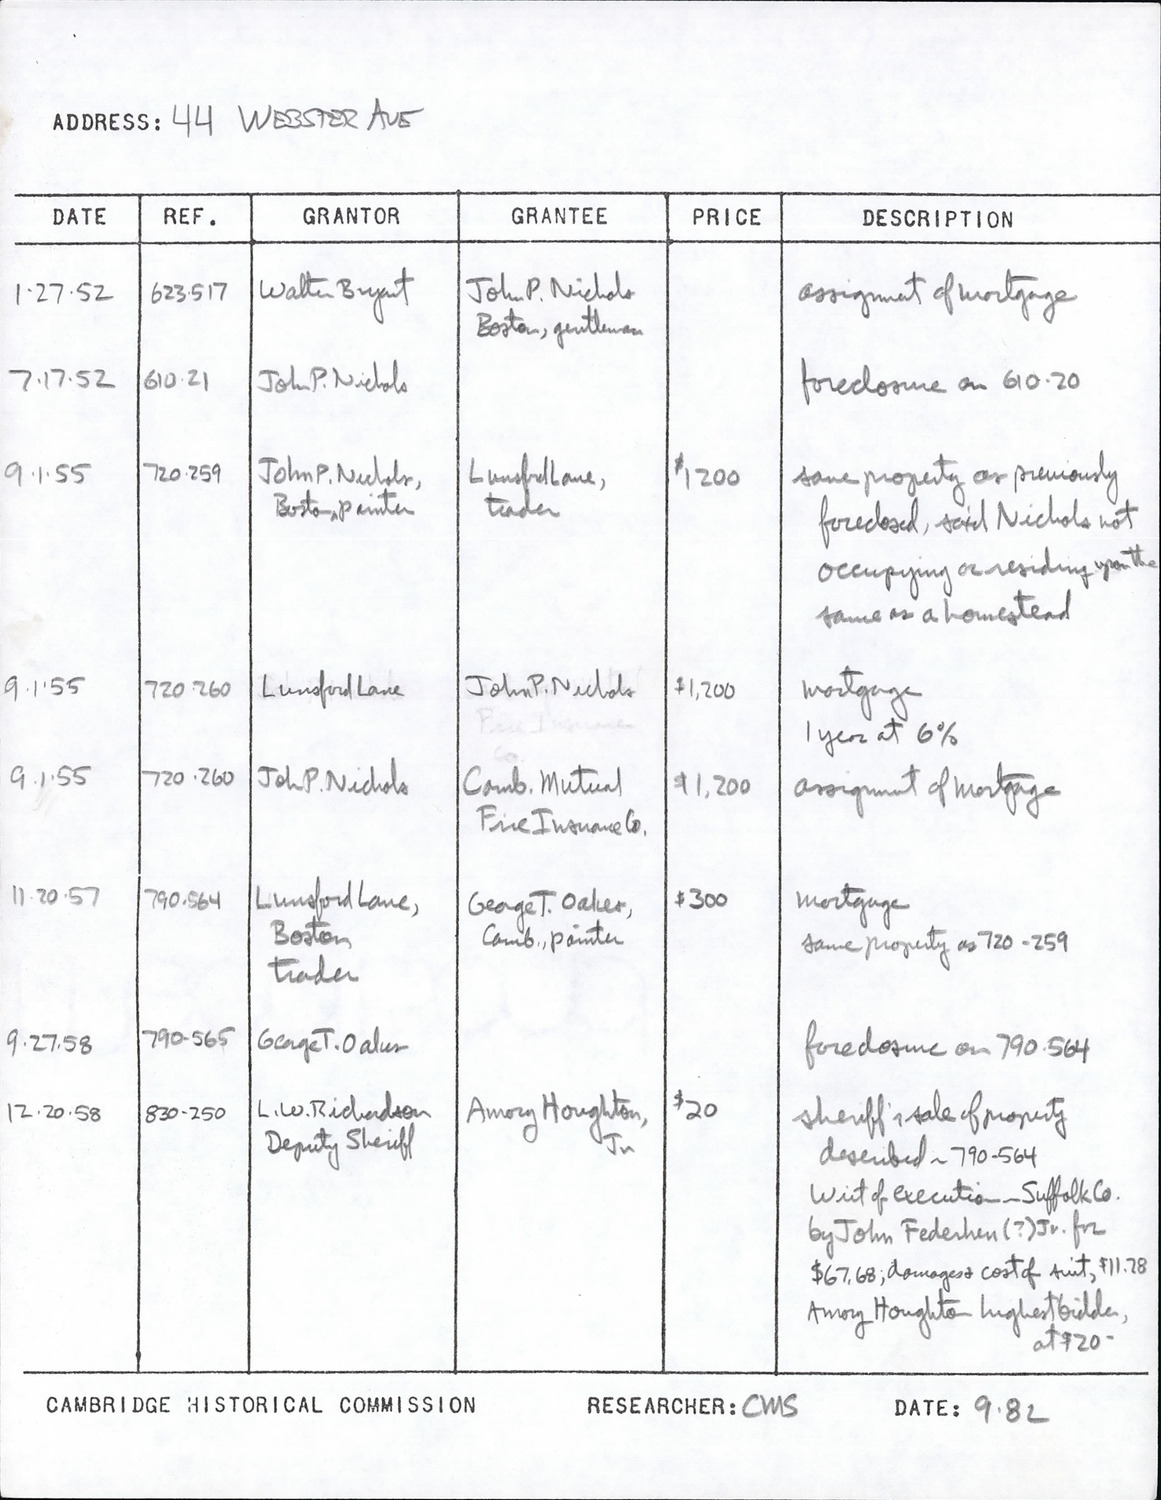 ADDRESS: 44 WEBSTER AVE
DATE REF. GRANTOR GRANTEE PRICE DESCRIPTION
1·27·52 623·517 Walter Bryant John P. Nichols assignment of mortgage
Boston, gentleman
7·17·52 610·21 John P. Nichols foreclosure on 610·20
9·1·55 720·259 John P. Nichols, Lunsford Lane, $1200 same property as previously
Boston, painter trader foreclosed, said Nichols not
occupying or residing upon the
same as a homestead
9·1·55 720·260 Lunsford Lane John P. Nichols $1,200 mortgage
Fire Insurance 1 year at 6%
Co.
9·1·55 720·260 John P. Nichols Camb. Mutual $1,200 assignment of mortgage
Fire Insurance Co.
11·20·57 790·564 Lunsford Lane, George T. Oakes, $300 mortgage
Boston Camb., painter same property as 720-259
trader
9·27·58 790-565 George T. Oakes foreclosure on 790·564
12·20·58 830-250 L.W. Richardson Amory Houghton, $20 sheriff's sale of property
Deputy Sheriff Jr described ~ 790-564
Writ of execution – Suffolk Co.
by John Federhen (?) Jr. for
$67.68; damages & cost of suit, $11.28
Amory Houghton highest bidder,
at $20-
CAMBRIDGE HISTORICAL COMMISSION RESEARCHER: CMS DATE: 9·82